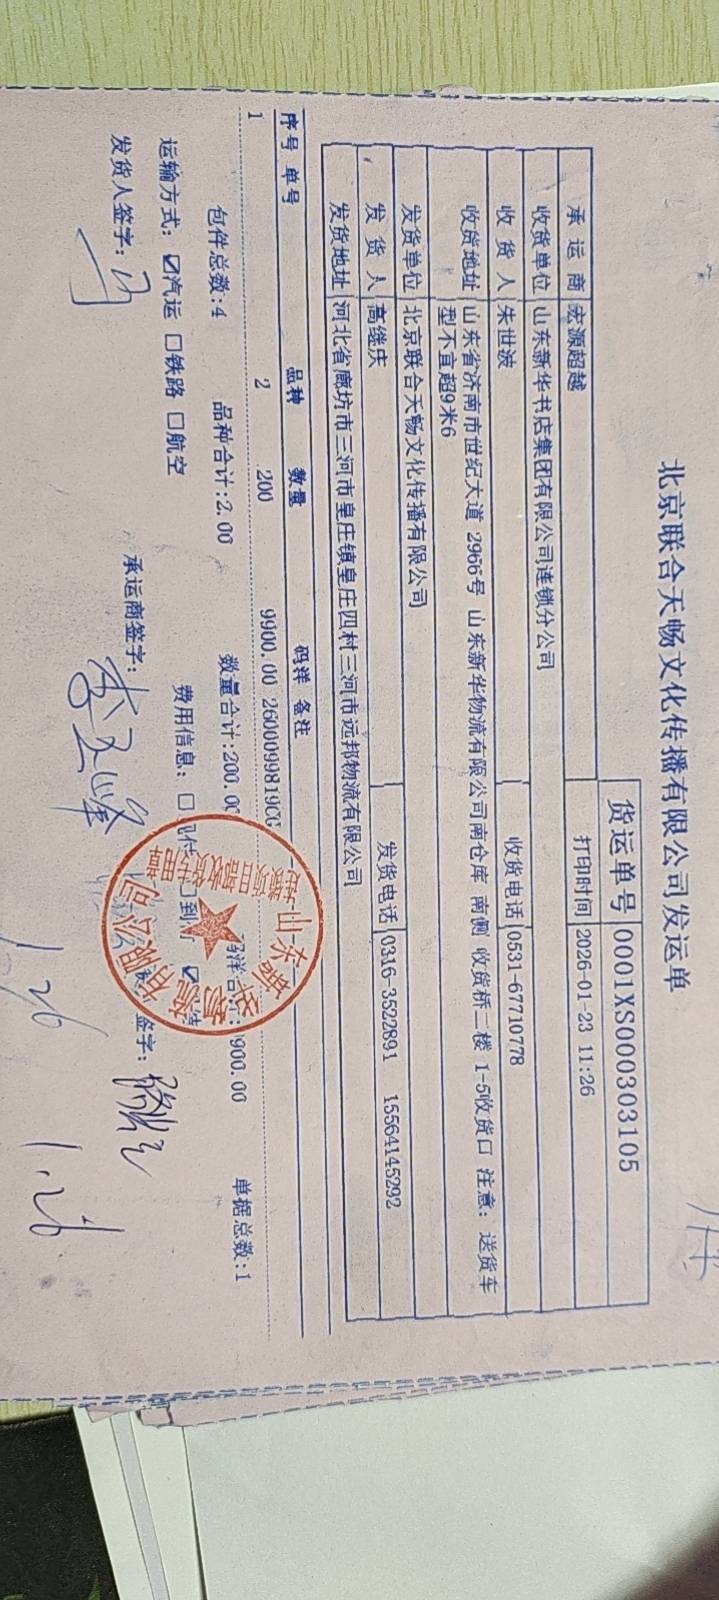 北京联合天畅文化传播有限公司发运单
货运单号 0001XS000303105
承运商 宏源超越 打印时间 2026-01-23 11:26
收货单位 山东新华书店集团有限公司连锁分公司
收货人 朱世波 收货电话 0531-67710778
收货地址 山东省济南市世纪大道 2966号 山东新华物流有限公司南仓库 南侧 收货桥二楼 1-5收货口 注意：送货车
型不宜超9米6
发货单位 北京联合天畅文化传播有限公司
发货人 高继庆 发货电话 0316-3522891 15564145292
发货地址 河北省廊坊市三河市皇庄镇皇庄四村三河市远邦物流有限公司
序号 单号 品种 数量 码洋 备注
1 2 200 9900.00 2600099819CG
包件总数:4 品种合计:2.00 数量合计:200.00 码洋合计: 900.00 单据总数:1
运输方式: ☑汽运 □铁路 □航空 费用信息: □ 付 □到
发货人签字: 承运商签字: 签字:
1.26 1.26
山东新华
有限公司
连锁项目部收货专用章